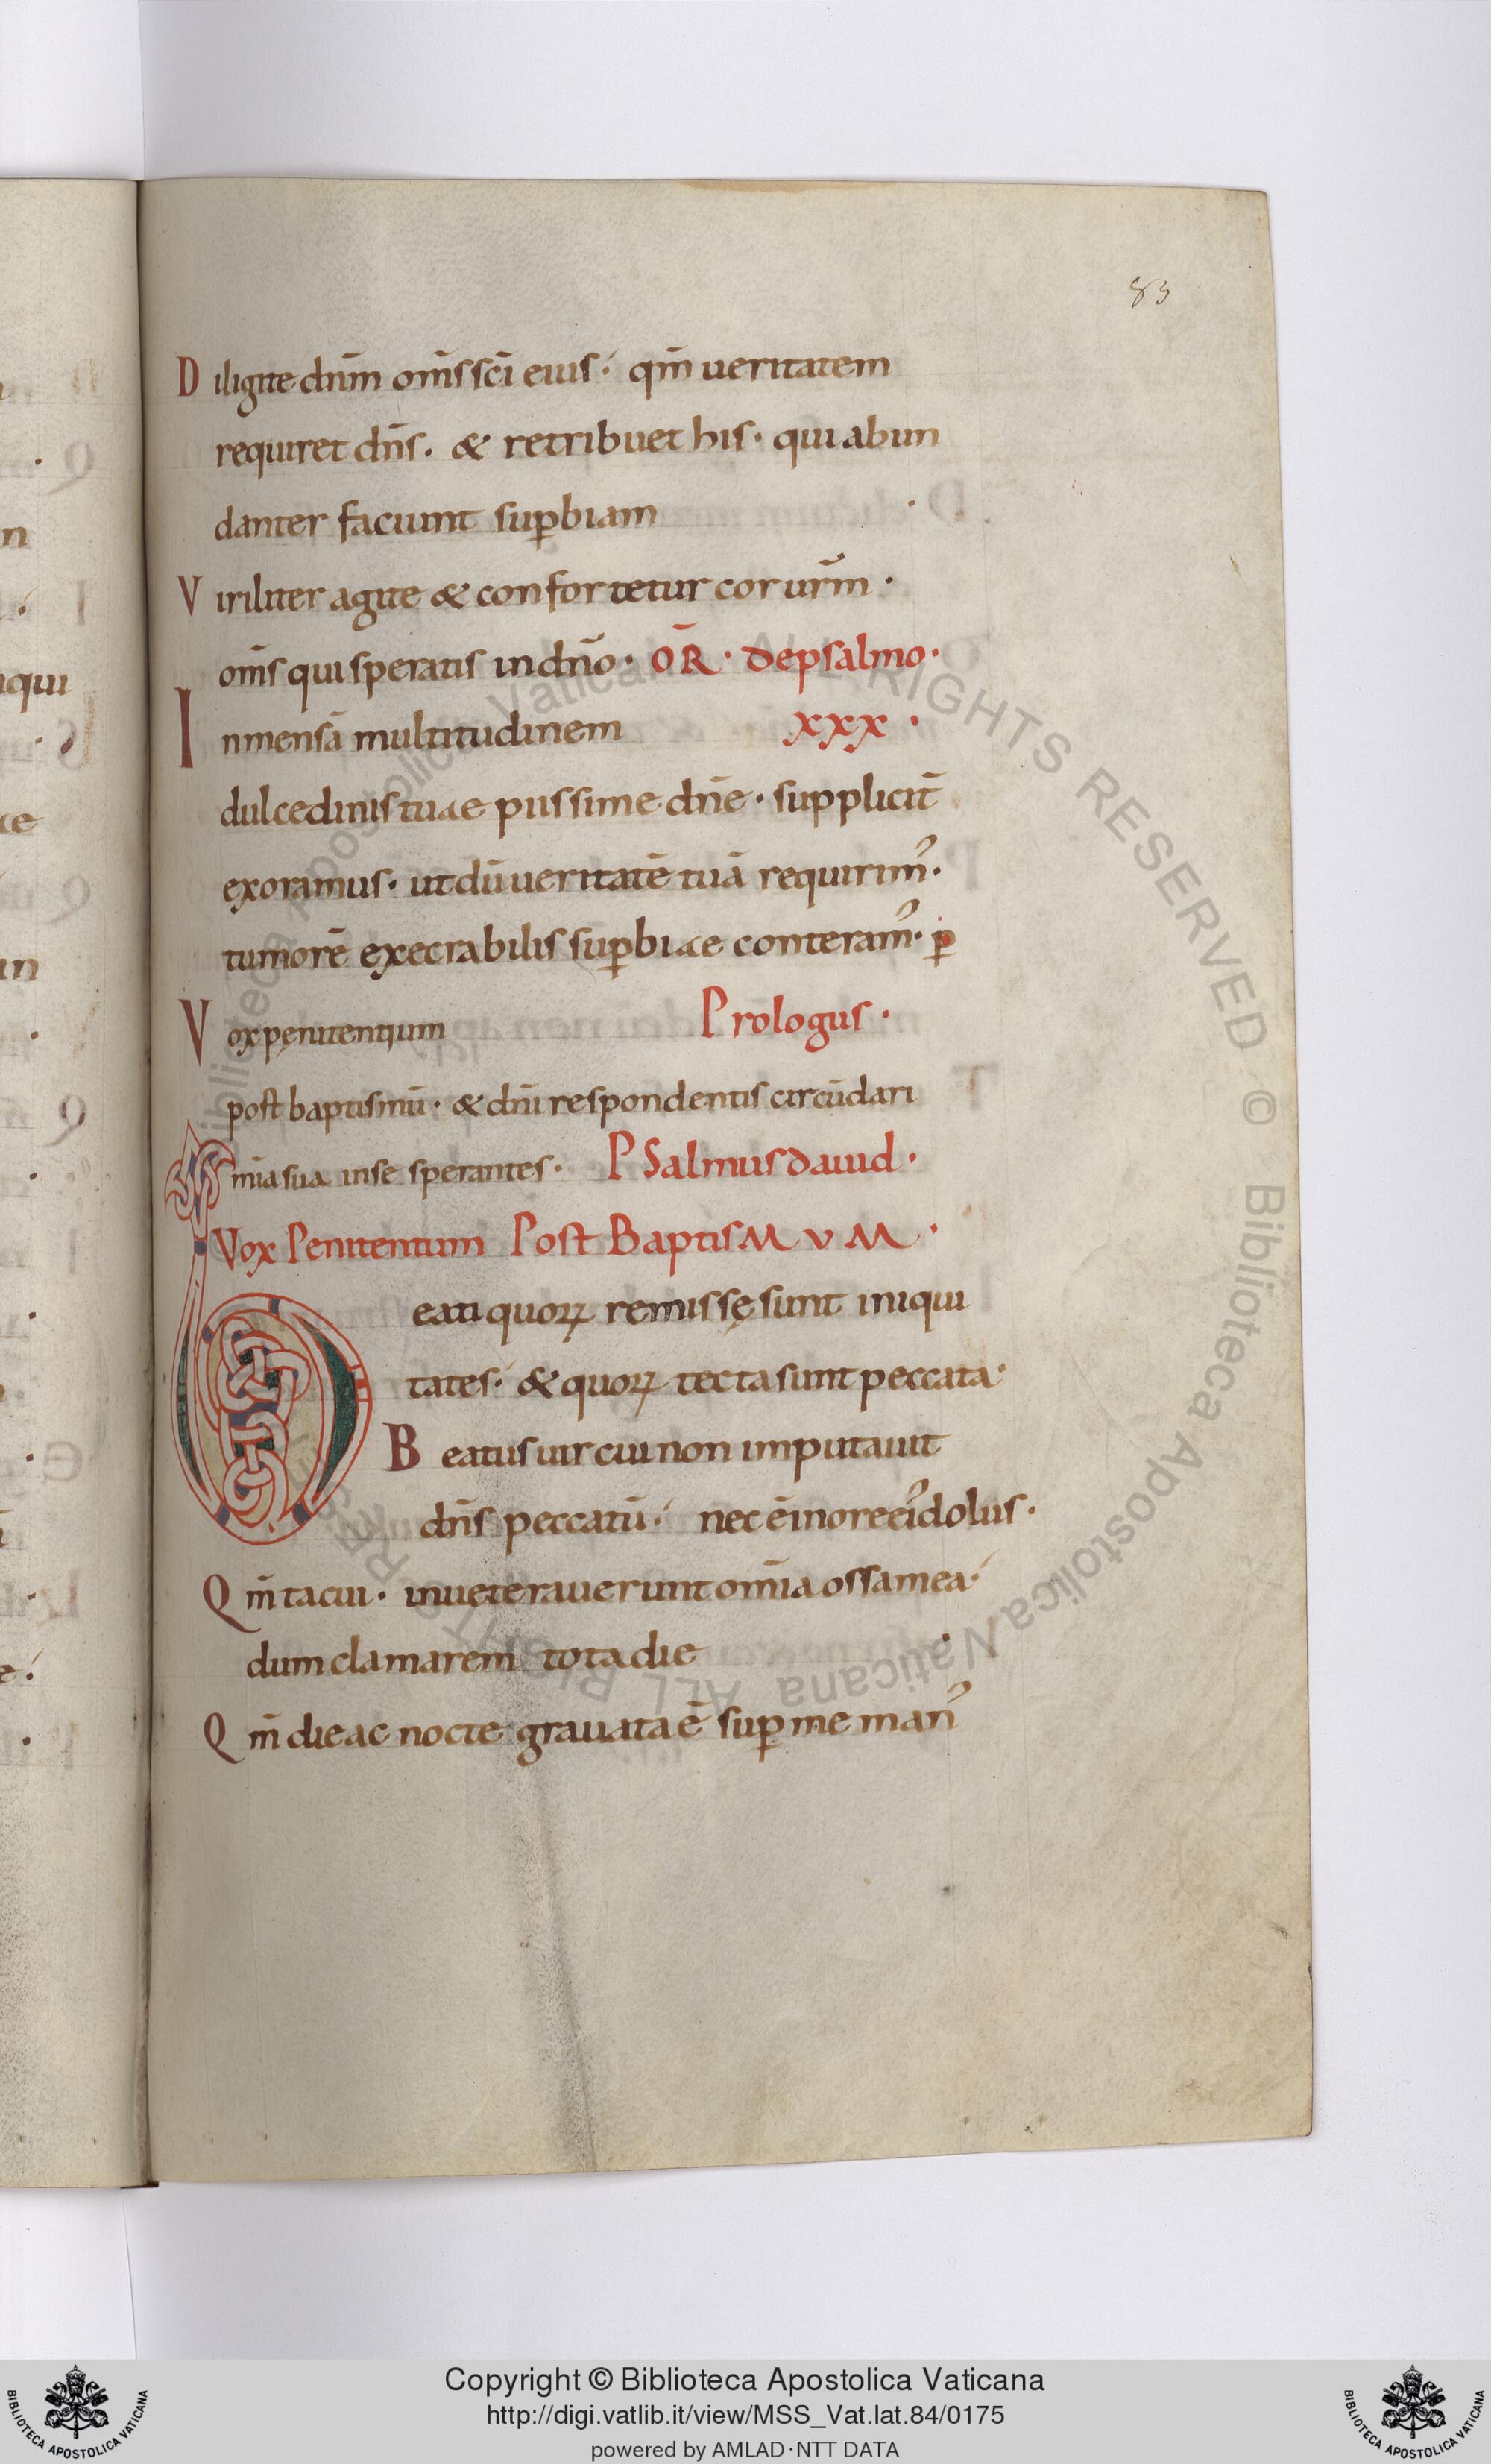 83
Diligite dn̄m om̄s sc̄i eius· qm̄ ueritatem
requiret dn̄s· & retribuet his· qui abun
danter faciunt sup̱biam ·
Viriliter agite & confortetur cor ur̄m ·
om̄s qui speratis in dn̄o· OR̄· De psalmo·
Inmensā multitudinem xxx ·
dulcedinis tuae piissime dn̄e· supplicit̄
exoramus· ut dū ueritatē tuā requirim᾽·
tumorē execrabilis sup̱biae conteram᾽· p̱
Vox pęnitentium Prologus·
post baptismū· & dn̄i respondentis circūdari
mīa sua in se sperantes· PSalmus Dauid·
Vox Penitentum Post BaptisMVM·
Beati quoꝝ remissę sunt iniqui
tates· & quoꝝ tecta sunt peccata·
Beatus uir cui non imputauit
dn̄s peccatū· nec ē in ore ei᾽ dolus·
Qm̄ tacui· inueterauerunt om̄ia ossa mea·
dum clamarem tota die ·
Qm̄ die ac nocte grauata ē sup̱ me man᾽
Copyright © Biblioteca Apostolica Vaticana
http://digi.vatlib.it/view/MSS_Vat.lat.84/0175
powered by AMLAD·NTT DATA